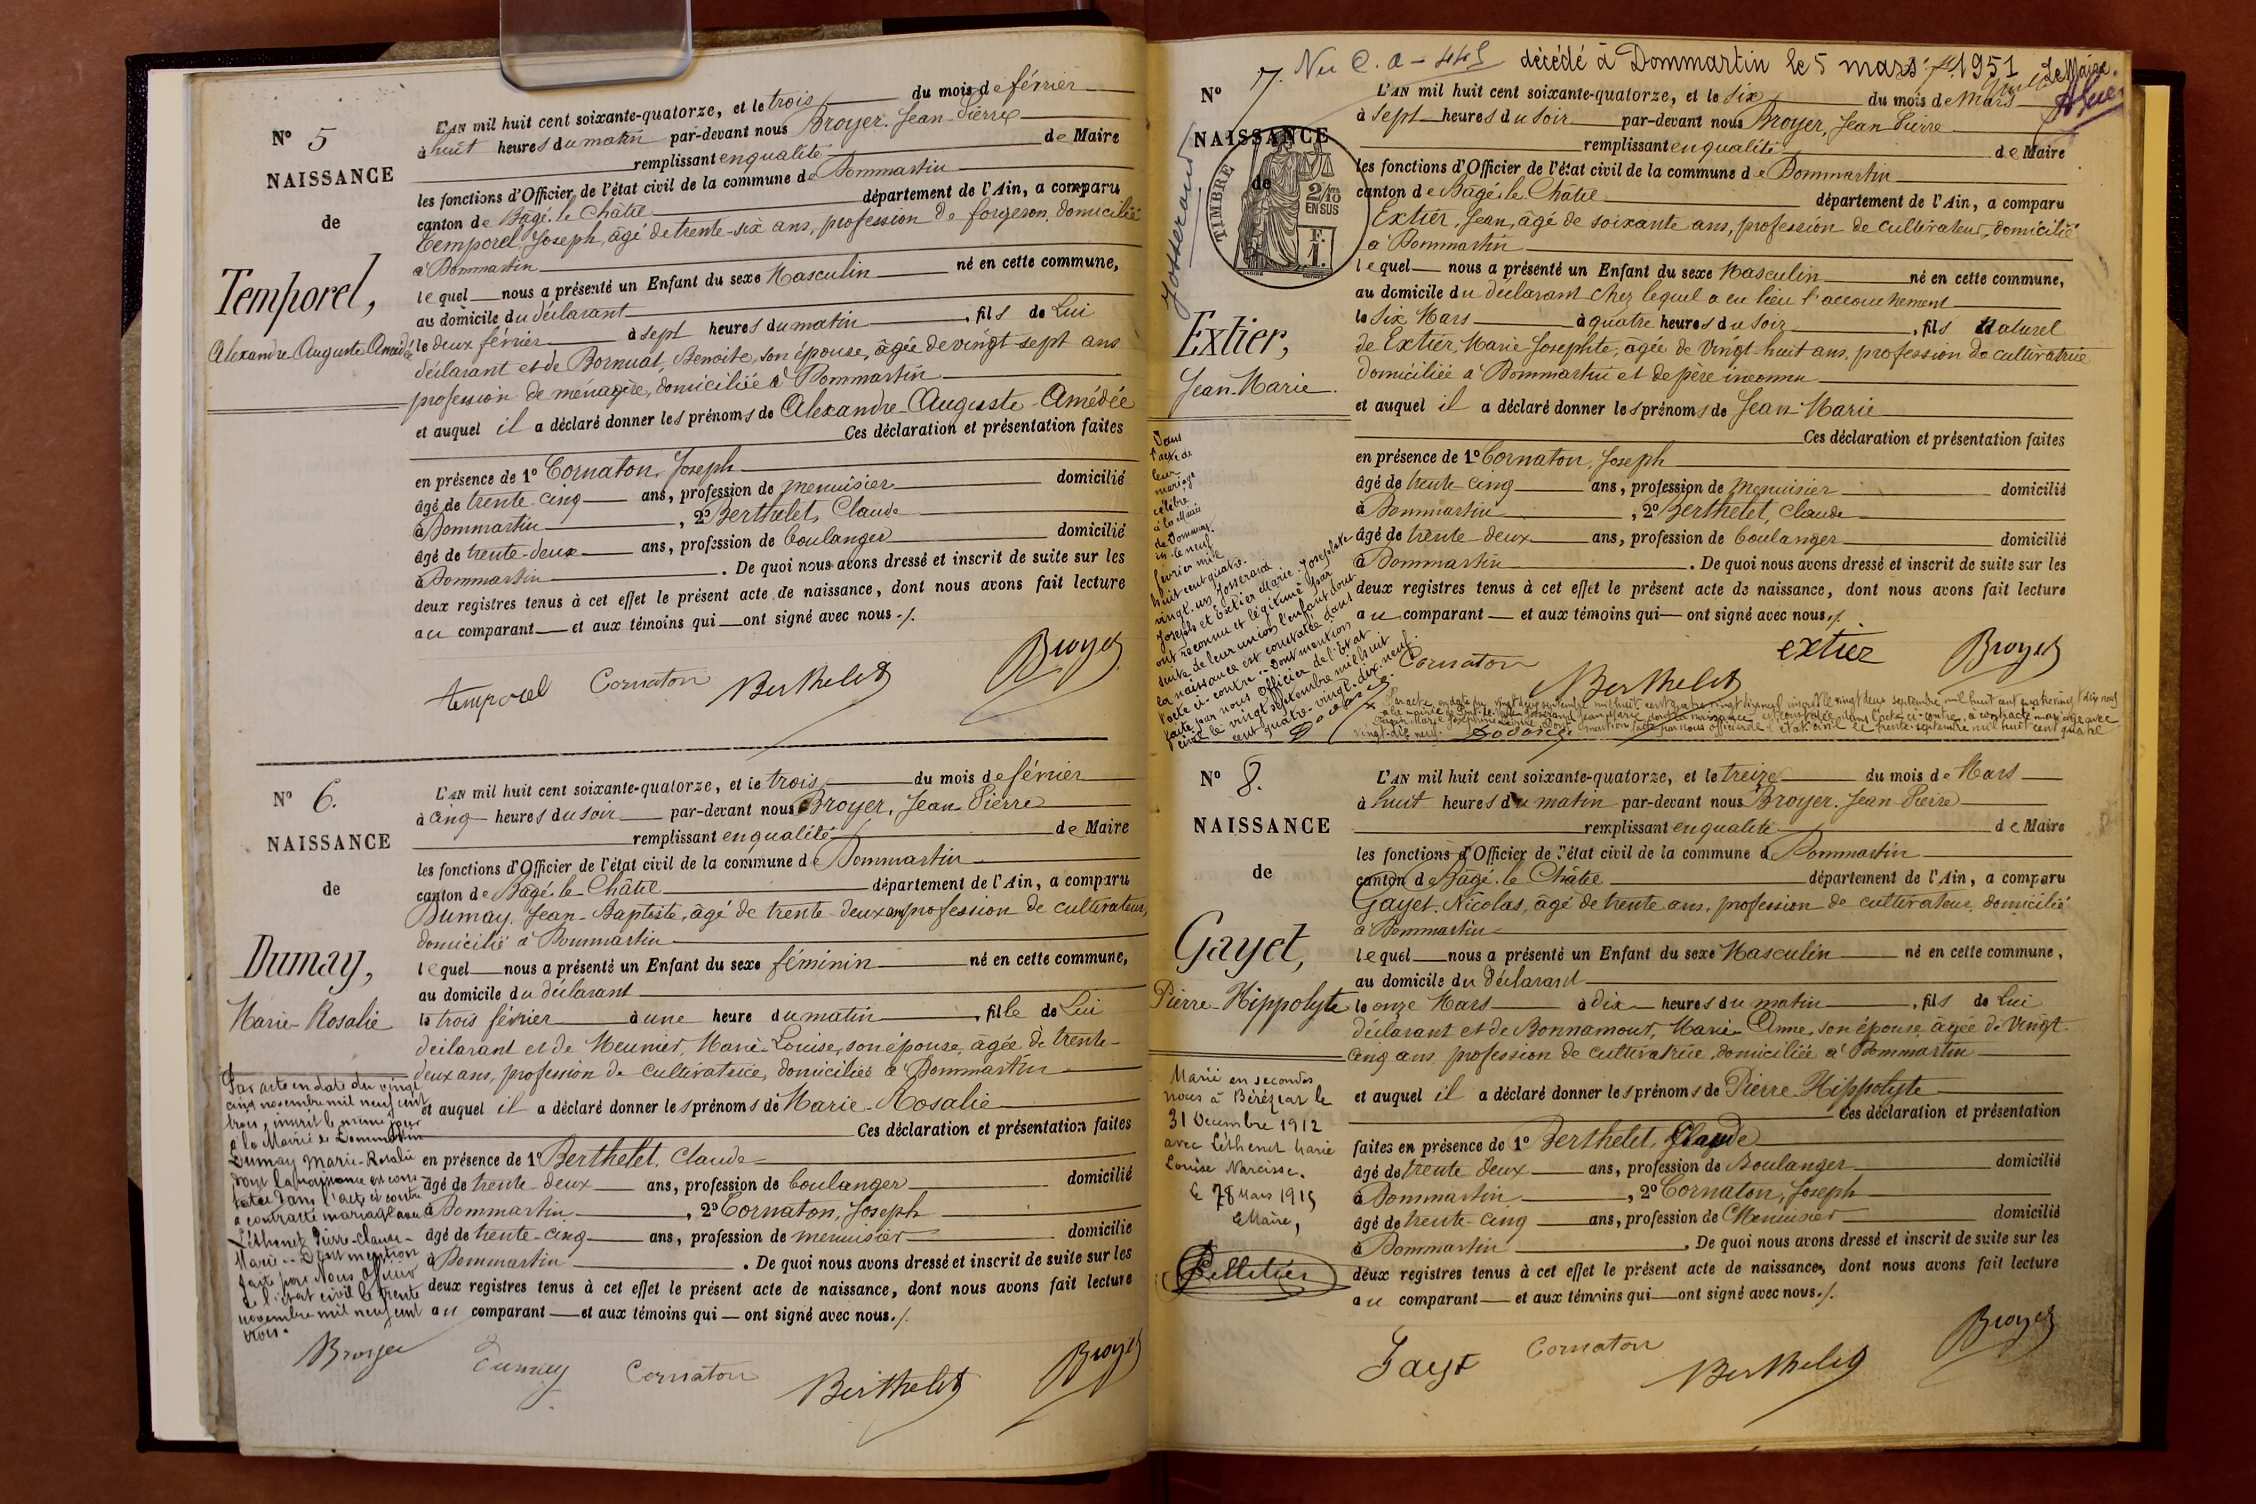 Nº 5
NAISSANCE
de
Temporel,
Alexandre Auguste Amédée
L'AN mil huit cent soixante-quatorze, et le trois du mois de février
à huit heures du matin par-devant nous Broyer, Jean Pierre
remplissant en qualité de Maire
les fonctions d'Officier de l'état civil de la commune de Dommartin
canton de Bagé-le-Châtel département de l'Ain, a comparu
Temporel, Joseph, âgé de trente-six ans, profession de forgeron, domicilié
à Dommartin
lequel nous a présenté un Enfant du sexe Masculin né en cette commune,
au domicile du déclarant
le deux février à sept heures du matin, fils de Lui
déclarant et de Bornuat, Benoite, son épouse, âgée de vingt-sept ans
profession de ménagère, domiciliée à Dommartin
et auquel il a déclaré donner les prénoms de Alexandre-Auguste-Amédée
Ces déclaration et présentation faites
en présence de 1º Cornaton, Joseph
âgé de trente-cinq ans, profession de menuisier domicilié
à Dommartin, 2º Berthelet, Claude
âgé de trente-deux ans, profession de boulanger domicilié
à Dommartin. De quoi nous avons dressé et inscrit de suite sur les
deux registres tenus à cet effet le présent acte de naissance, dont nous avons fait lecture
au comparant et aux témoins qui ont signé avec nous./.
temporel Cornaton Berthelet Broyer
Nº 6.
NAISSANCE
de
Dumay,
Marie-Rosalie
L'AN mil huit cent soixante-quatorze, et le trois du mois de février
à cinq heures du soir par-devant nous Broyer, Jean Pierre
remplissant en qualité de Maire
les fonctions d'Officier de l'état civil de la commune de Dommartin
canton de Bagé-le-Châtel département de l'Ain, a comparu
Dumay, Jean-Baptiste, âgé de trente-deux ans, profession de cultivateur,
domicilié à Dommartin
lequel nous a présenté un Enfant du sexe féminin né en cette commune,
au domicile du déclarant
le trois février à une heure du matin, fille de Lui
déclarant et de Meunier, Marie-Louise, son épouse, âgée de trente-
deux ans, profession de cultivatrice, domiciliée à Dommartin
et auquel il a déclaré donner les prénoms de Marie-Rosalie
Ces déclaration et présentation faites
en présence de 1º Berthelet, Claude
âgé de trente-deux ans, profession de boulanger domicilié
à Dommartin, 2º Cornaton, Joseph
âgé de trente-cinq ans, profession de menuisier domicilié
à Dommartin. De quoi nous avons dressé et inscrit de suite sur les
deux registres tenus à cet effet le présent acte de naissance, dont nous avons fait lecture
au comparant et aux témoins qui ont signé avec nous./.
Par acte en date du vingt
cinq novembre mil neuf cent
trois, inscrit le même jour
à la Mairie de Dommartin
Dumay Marie-Rosalie
dont la naissance est cons-
tatée dans l'acte ci contre
a contracté mariage avec
Léthenet Pierre-Claude-
Marie. Dont mention
faite par Nous officier
de l'état civil le trente
novembre mil neuf cent
trois.
Broyer
Dumay Cornaton Berthelet Broyer
décédé à Dommartin le 5 mars 1951 Le Maire.
Nº 7.
NAISSANCE
de
TIMBRE 2/10 EN SUS F. 1.
Josserand
Extier,
Jean-Marie
L'AN mil huit cent soixante-quatorze, et le six du mois de Mars
à sept heures du soir par-devant nous Broyer, Jean Pierre
remplissant en qualité de Maire
les fonctions d'Officier de l'état civil de la commune de Dommartin
canton de Bagé-le-Châtel département de l'Ain, a comparu
Extier, Jean, âgé de soixante ans, profession de cultivateur, domicilié
à Dommartin
lequel nous a présenté un Enfant du sexe Masculin né en cette commune,
au domicile du déclarant chez lequel a eu lieu l'accouchement
le Six Mars à quatre heures du soir, fils naturel
de Extier, Marie Josephte, âgée de vingt-huit ans, profession de cultivatrice
domiciliée à Dommartin et de père inconnu
et auquel il a déclaré donner les prénoms de Jean-Marie
Ces déclaration et présentation faites
en présence de 1º Cornaton, Joseph
âgé de trente-cinq ans, profession de menuisier domicilié
à Dommartin, 2º Berthelet, Claude
âgé de trente-deux ans, profession de boulanger domicilié
à Dommartin. De quoi nous avons dressé et inscrit de suite sur les
deux registres tenus à cet effet le présent acte de naissance, dont nous avons fait lecture
au comparant et aux témoins qui ont signé avec nous./.
Dans
l'acte de
leur
mariage
célébré
à la Mairie
de Dommar-
tin le neuf
février mil
huit cent quatre-
vingt-un, Josserand
Joseph et Extier Marie-Josephte
ont reconnu et légitimé par
suite de leur union l'enfant dont
la naissance est constatée dans
l'acte ci-contre. Dont mention
faite par nous officier de l'État
civil le vingt septembre mil huit
cent quatre-vingt-dix-neuf.
Cornaton extier Berthelet Broyer
Nº 8.
NAISSANCE
de
Gayet,
Pierre-Hippolyte
L'AN mil huit cent soixante-quatorze, et le treize du mois de Mars
à huit heures du matin par-devant nous Broyer, Jean Pierre
remplissant en qualité de Maire
les fonctions d'Officier de l'état civil de la commune de Dommartin
canton de Bâgé-le-Châtel département de l'Ain, a comparu
Gayet, Nicolas, âgé de trente ans, profession de cultivateur, domicilié
à Dommartin
lequel nous a présenté un Enfant du sexe Masculin né en cette commune,
au domicile du déclarant
le onze Mars à dix heures du matin, fils de Lui
déclarant et de Bonnamour, Marie-Anne, son épouse, âgée de vingt-
cinq ans, profession de cultivatrice, domiciliée à Dommartin
et auquel il a déclaré donner les prénoms de Pierre-Hippolyte
Ces déclaration et présentation
faites en présence de 1º Berthelet, Claude
âgé de trente-deux ans, profession de Boulanger domicilié
à Dommartin, 2º Cornaton, Joseph
âgé de trente-cinq ans, profession de Menuisier domicilié
à Dommartin. De quoi nous avons dressé et inscrit de suite sur les
deux registres tenus à cet effet le présent acte de naissance, dont nous avons fait lecture
au comparant et aux témoins qui ont signé avec nous./.
Marié en secondes
noces à Béréziat le
31 Décembre 1912
avec Léthenet Marie
Louise Narcisse.
Le 28 Mars 1915
Le Maire,
Pelletier
Gayet Cornaton Berthelet Broyer